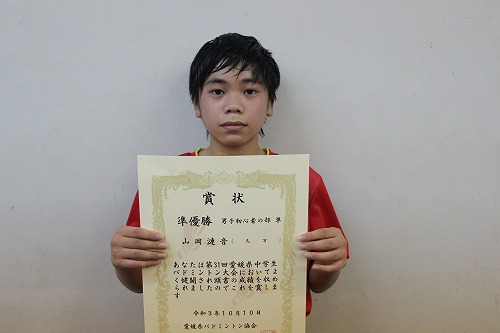 賞状
準優勝 男子初心者の部 単
山岡漣音（久万）
あなたは第31回愛媛県中学生
バドミントン大会においてよ
く健闘され頭書の成績を収め
られましたのでこれを賞しま
す
令和3年10月10日
愛媛県バドミントン協会